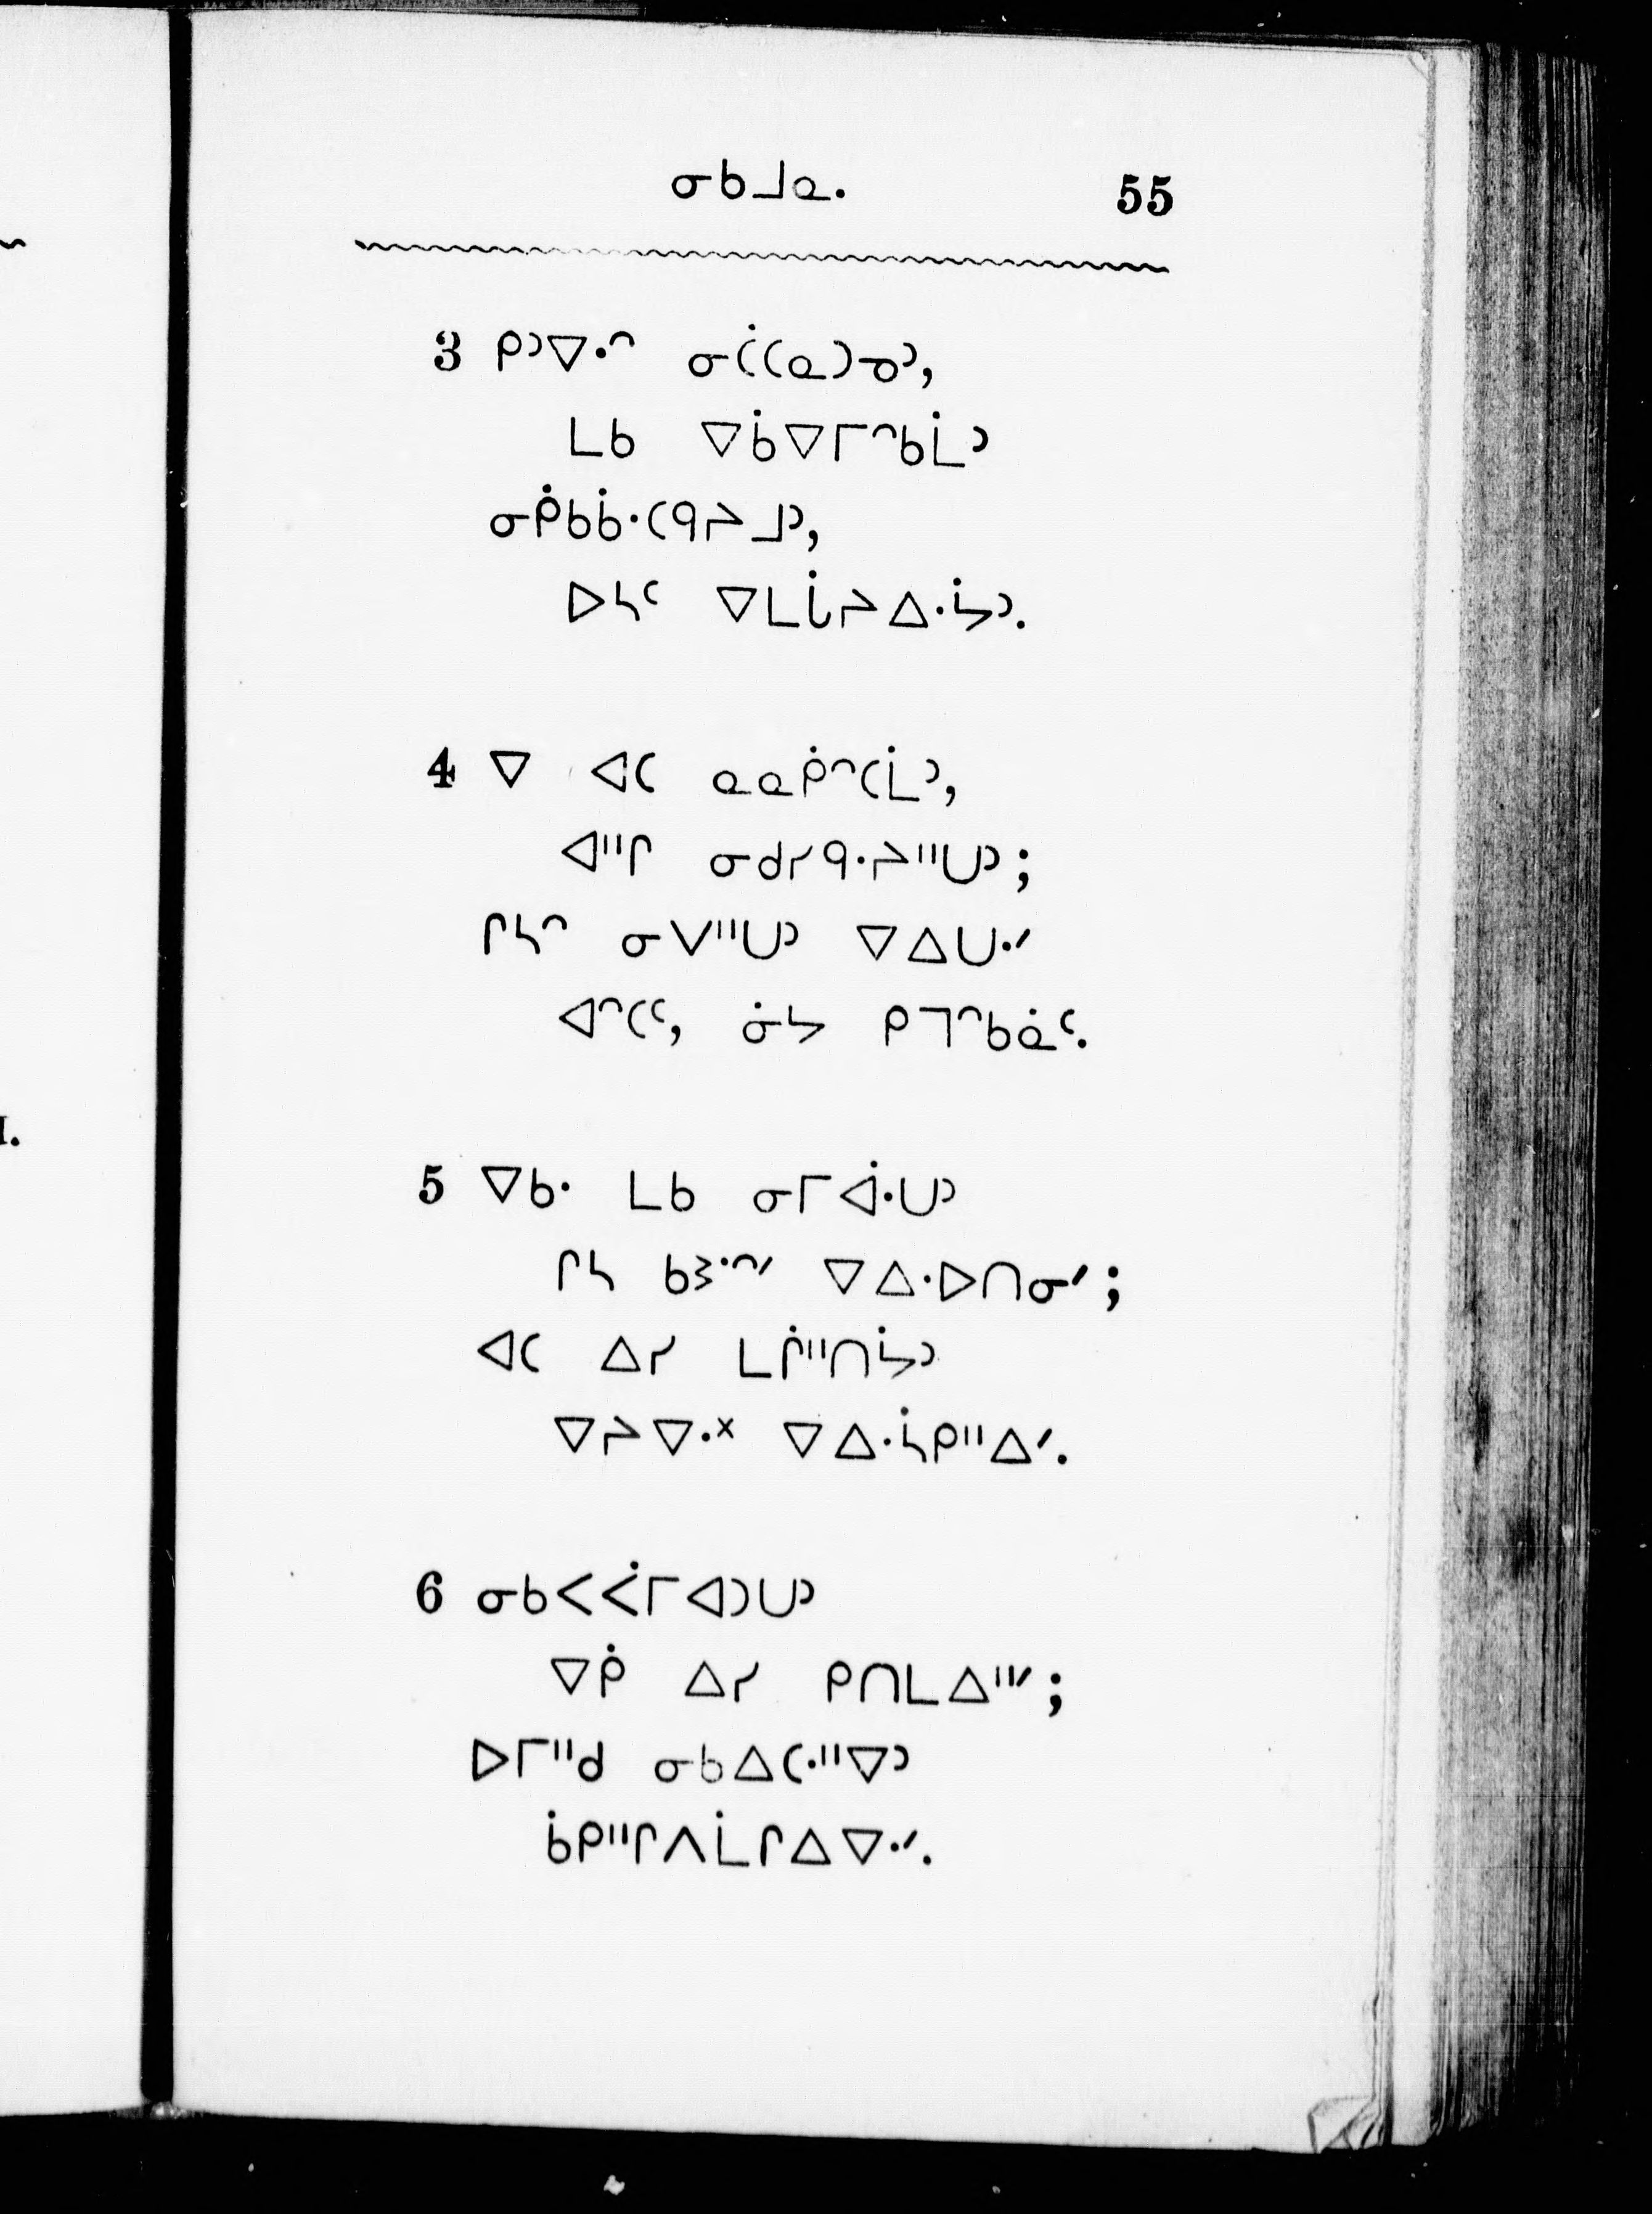 ᓂᑲᒧᓇ. 55
3 ᑭᐣᐁᐧᐢ ᓂᑖᑕᓇᑐᓀᐣ,
ᒪᑲ ᐁᑳᐁᒥᐢᑲᒫᐣ
ᓂᑮᑲᑳᐧᑕᑫᔨᒧᐣ,
ᐅᓴᑦ ᐁᒪᒑᔨᐃᐧᔮᐣ.
4 ᐁ ᐊᑕ ᓇᓇᑮᐢᑕᒫᐣ,
ᐊᐦᒋ ᓂᑯᓯᑫᐧᔨᐦᑌᐣ ;
ᒋᓴᐢ ᓂᐯᐦᑌᐣ ᐁᐃᑌᐧᐟ
ᐊᐢᑕᑦ, ᓃᔭ ᑭᒣᐢᑲᓈᑦ.
5 ᐁᑲᐧ ᒪᑲ ᓂᒥᐚᑌᐣ
ᒋᓴ ᑲᓬᐧᐢᐟ ᐁᐃᐧᐅᑎᓂᐟ ;
ᐊᑕ ᐃᓯ ᒪᒌᐦᑎᔮᐣ
ᐁᔨᐁᐧᕽ ᐁᐃᐧᓵᑭᐦᐃᐟ.
6 ᓂᑲᐸᐹᒥᐊᑐᑌᐣ
ᐁᑮ ᐃᓯ ᑭᑎᒪᐃᐦᐟ ;
ᐅᒥᐦᑯ ᓂᑲᐃᑕᐧᐦᐁᐣ
ᑳᑭᐦᒋᐱᒫᒋᐃᐁᐧᐟ.